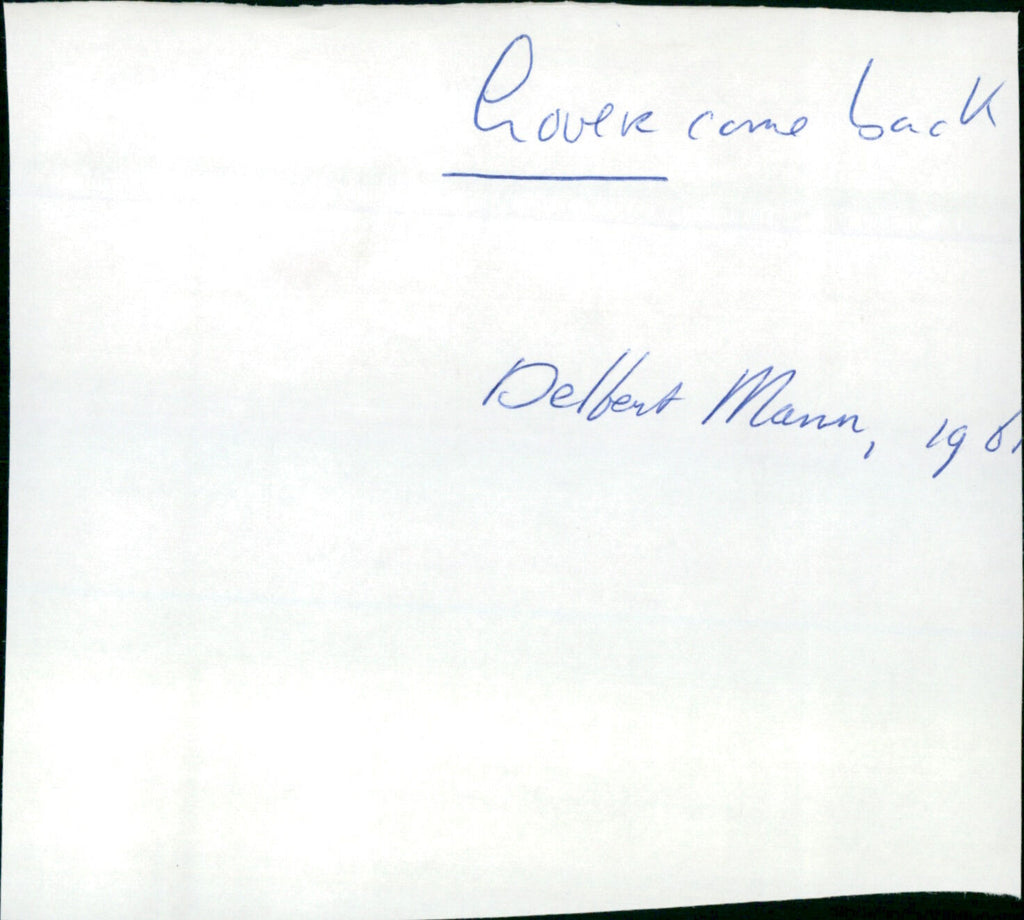 Lover come back
Delbert Mann, 1961